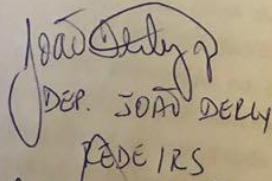 João Derly
DEP. JOAÕ DERLY
REDE IRS